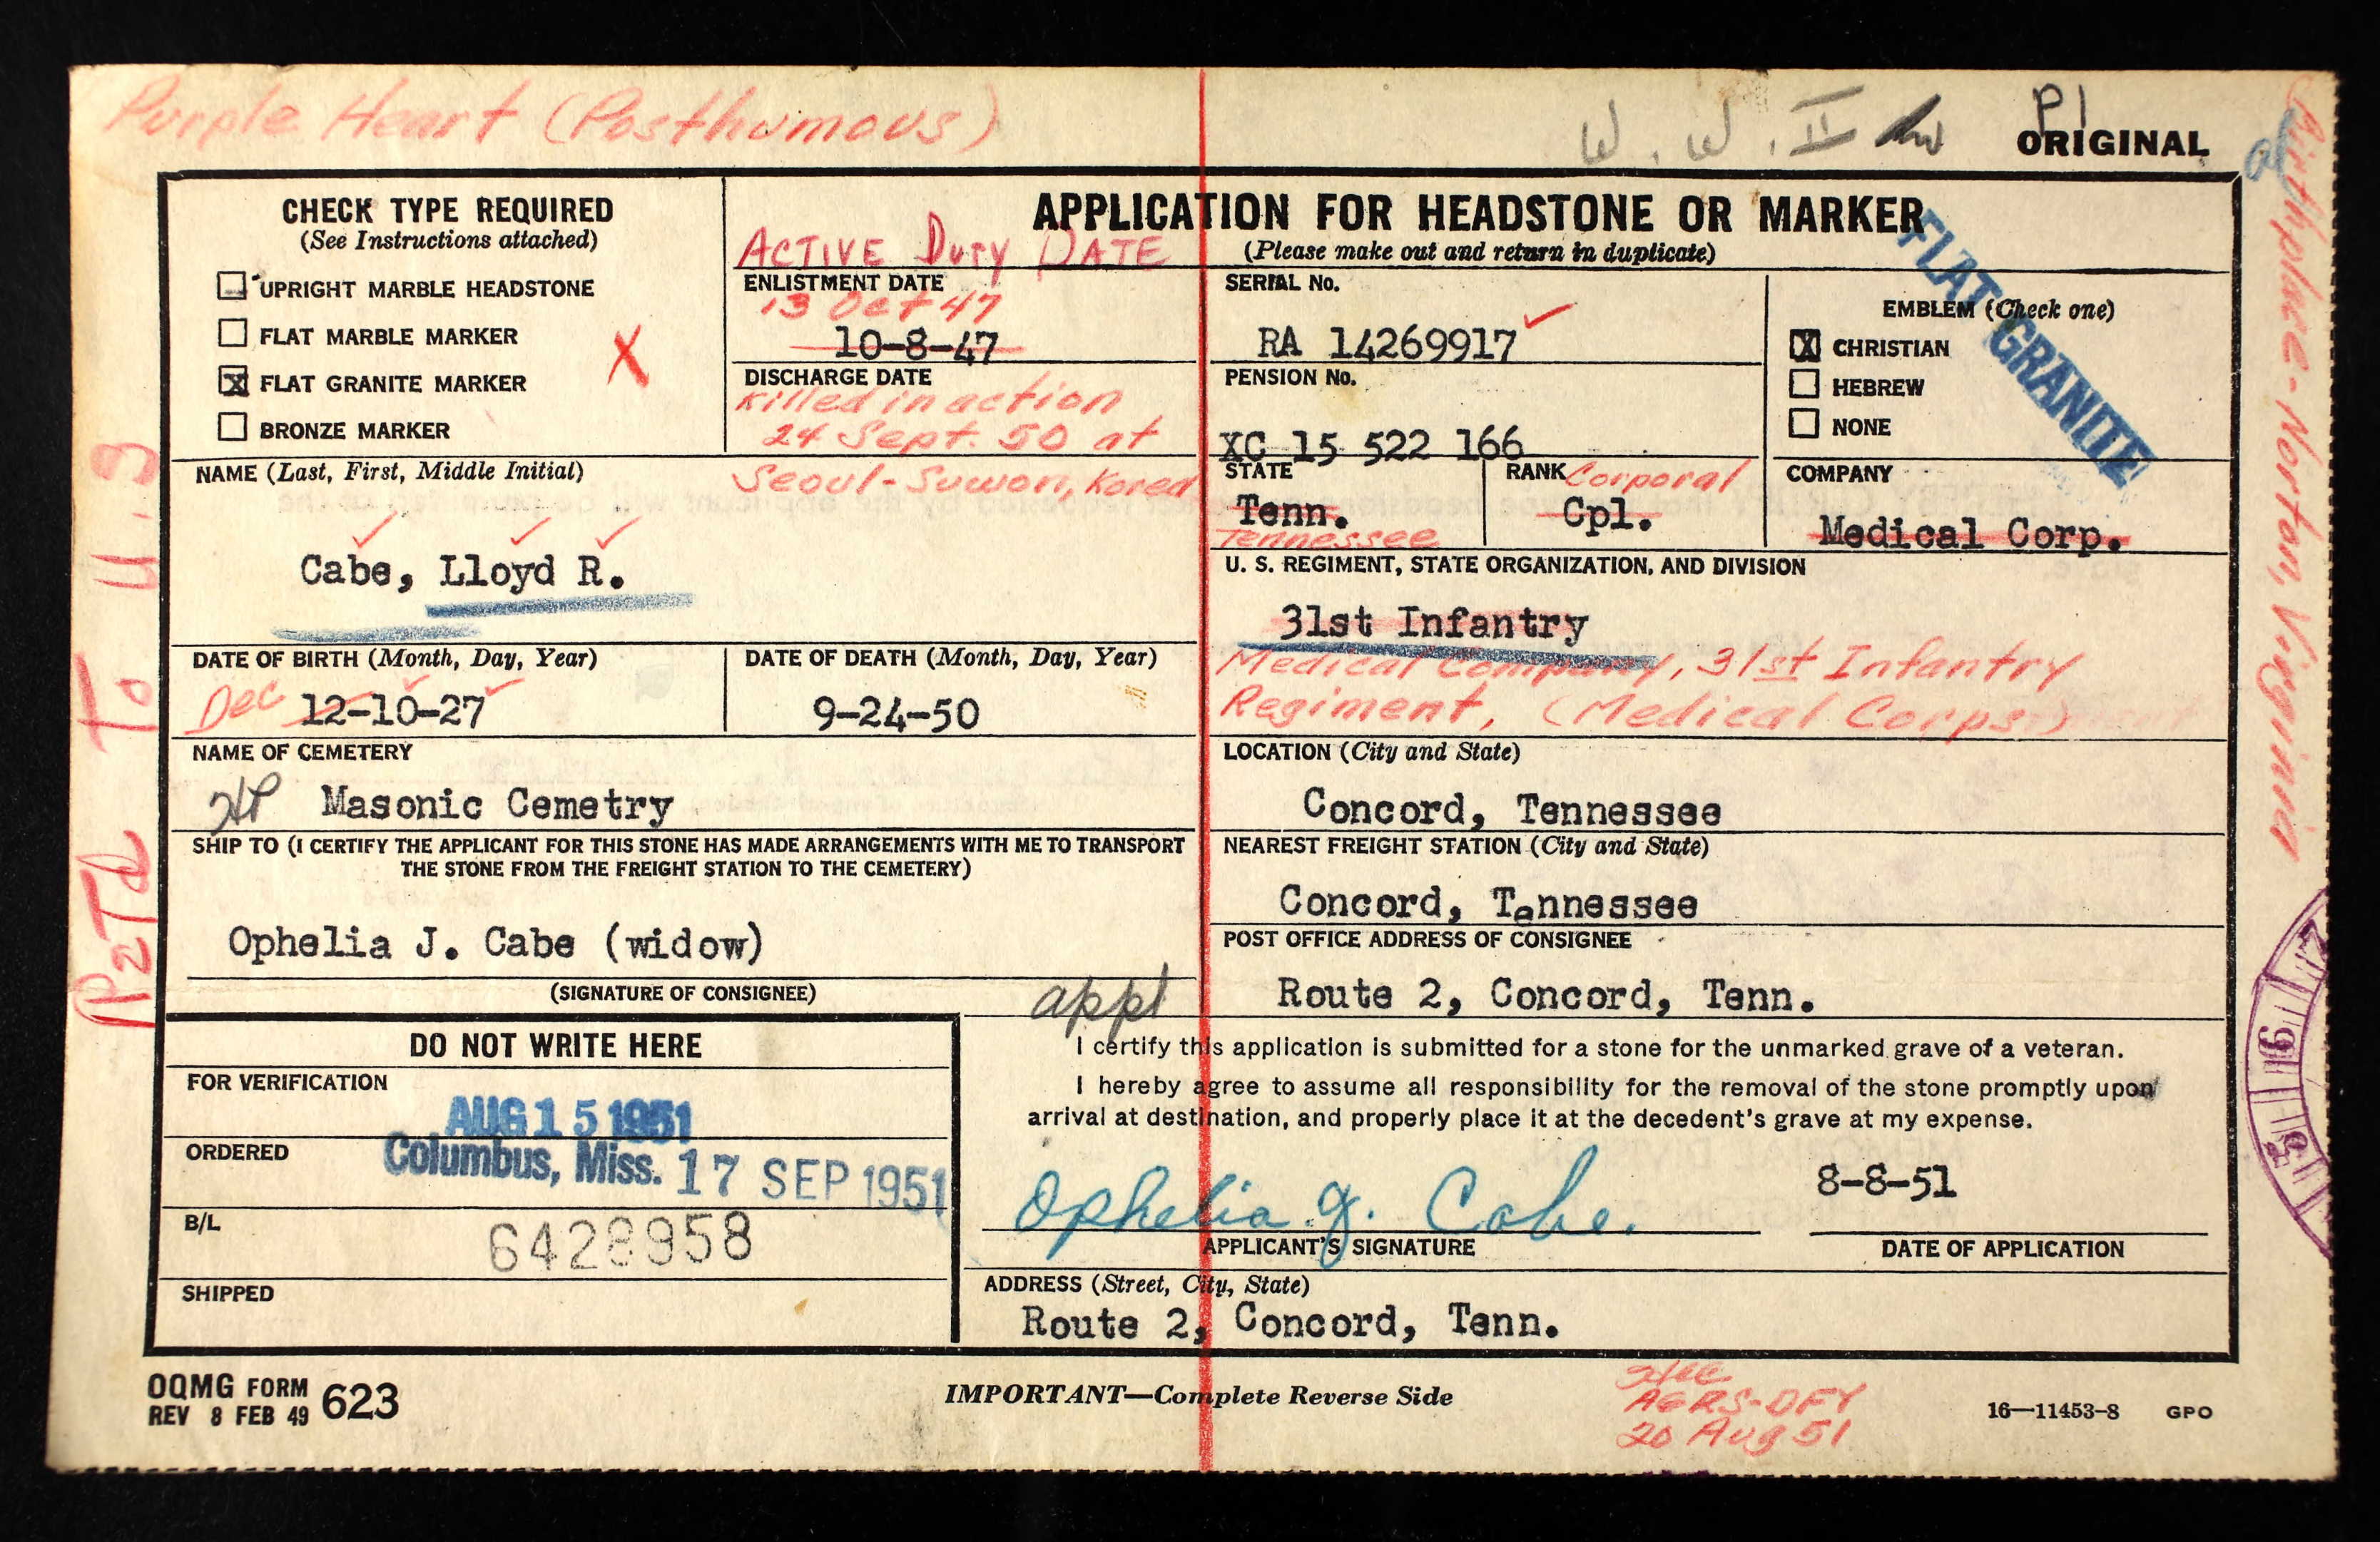 Purple Heart (Posthumous)
W. W. II
Pl
ORIGINAL
Birthplace - Norton, Virginia
CHECK TYPE REQUIRED
(See Instructions attached)
UPRIGHT MARBLE HEADSTONE
FLAT MARBLE MARKER
X FLAT GRANITE MARKER
BRONZE MARKER
X
APPLICATION FOR HEADSTONE OR MARKER
(Please make out and return in duplicate)
FLAT GRANITE
ACTIVE Duty DATE
ENLISTMENT DATE
13 Oct 47
10-8-47
DISCHARGE DATE
Killed in action
24 Sept. 50 at
Seoul-Suwon, Korea
SERIAL No.
RA 14269917
PENSION No.
XC 15 522 166
EMBLEM (Check one)
X CHRISTIAN
HEBREW
NONE
NAME (Last, First, Middle Initial)
Cabe, Lloyd R.
STATE
Tenn.
Tennessee
RANK Corporal
Cpl.
COMPANY
Medical Corp.
U. S. REGIMENT, STATE ORGANIZATION, AND DIVISION
31st Infantry
Medical Company, 31st Infantry
Regiment, (Medical Corps)
DATE OF BIRTH (Month, Day, Year)
Dec 12-10-27
DATE OF DEATH (Month, Day, Year)
9-24-50
NAME OF CEMETERY
Masonic Cemetry
LOCATION (City and State)
Concord, Tennessee
SHIP TO (I CERTIFY THE APPLICANT FOR THIS STONE HAS MADE ARRANGEMENTS WITH ME TO TRANSPORT
THE STONE FROM THE FREIGHT STATION TO THE CEMETERY)
Ophelia J. Cabe (widow)
(SIGNATURE OF CONSIGNEE)
NEAREST FREIGHT STATION (City and State)
Concord, Tennessee
POST OFFICE ADDRESS OF CONSIGNEE
appl
Route 2, Concord, Tenn.
DO NOT WRITE HERE
FOR VERIFICATION
AUG 15 1951
ORDERED
Columbus, Miss. 17 SEP 1951
B/L
6428958
SHIPPED
I certify this application is submitted for a stone for the unmarked grave of a veteran.
I hereby agree to assume all responsibility for the removal of the stone promptly upon
arrival at destination, and properly place it at the decedent's grave at my expense.
Ophelia J. Cabe.
APPLICANT'S SIGNATURE
8-8-51
DATE OF APPLICATION
ADDRESS (Street, City, State)
Route 2, Concord, Tenn.
OQMG FORM 623
REV 8 FEB 49
IMPORTANT—Complete Reverse Side
AGRS-DFY
20 Aug 51
16—11453-8 GPO